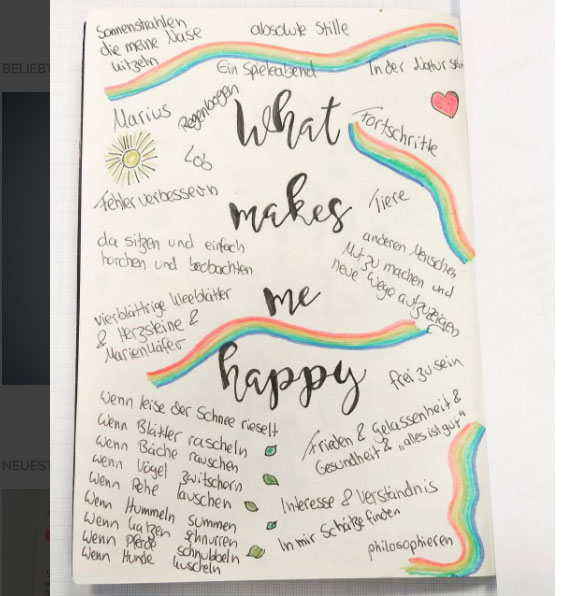 BELIEBT
NEUEST
Sonnenstrahlen
die meine Nase
kitzeln
absolute Stille
Ein Spieleabend
In der Natur sein
Marius
Regenbogen
What
Fortschritte
Lob
Fehler verbessern
makes
Tiere
da sitzen und einfach
horchen und beobachten
anderen Menschen
Mut zu machen und
neue Wege aufzuzeigen
me
vierblättrige Kleeblätter
& Herzsteine &
Marienkäfer
happy
frei zu sein
Wenn leise der Schnee rieselt
Wenn Blätter rascheln
Wenn Bäche rauschen
Wenn Vögel zwitschern
Wenn Rehe lauschen
Wenn Hummeln summen
Wenn Katzen schnurren
Wenn Pferde schnubbeln
Wenn Hunde kuscheln
Frieden & Gelassenheit &
Gesundheit & „alles ist gut"
Interesse & Verständnis
In mir Schätze finden
philosophieren